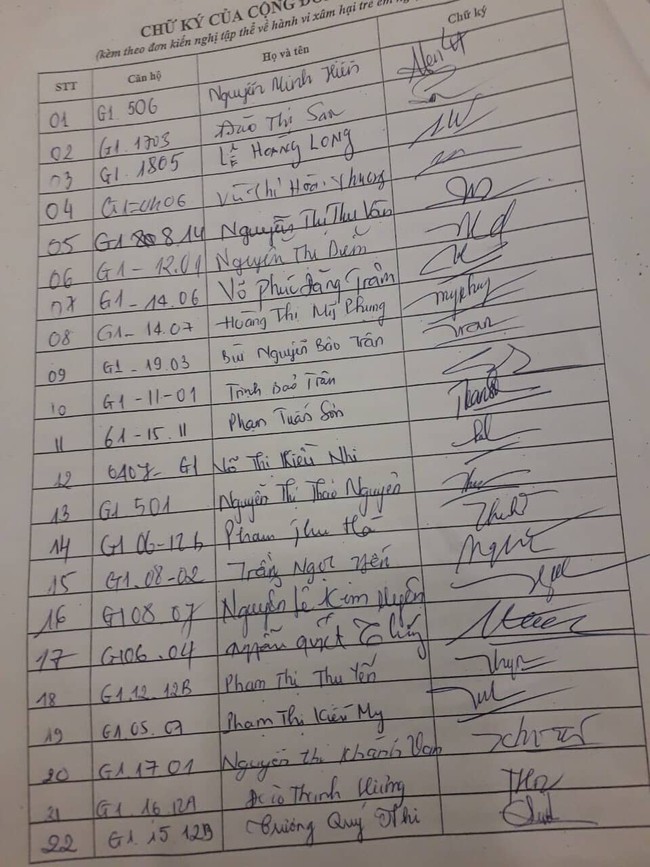 CHỮ KÝ CỦA CỘNG
(kèm theo đơn kiến nghị tập thể về hành vi xâm hại trẻ em
STT Căn hộ Họ và tên Chữ ký
01 G1. 506 Nguyễn Minh Hiền
02 G1. 1703 Đào Thị San
03 G1. 1805 LÊ HOÀNG LONG
04 Vũ Thị Hoài Phương
05 G1 814 Nguyễn Thị Thu Vân
06 G1 - 12.01 Nguyễn Thị Diễm
07 G1 - 14.06 Võ Phúc Đăng Trâm
08 G1 - 14.07 Hoàng Thị Mỹ Phụng myphụng
09 G1 - 19.03 Bùi Nguyễn Bảo Trân
10 G1 - 11 - 01 Trịnh Bảo Trân
11 G1 - 15.11 Phạm Tuấn Sơn
12 0407 - G1 Võ Thị Kiều Nhi
13 G1 501 Nguyễn Thị Thảo Nguyên
14 G1 06-12b Phạm Thu Hà
15 G1.08-02 Trần Ngọc Yến
16 G108.07 Nguyễn Lê Kim
17 G106.04
18 G1.12.12B Phạm Thị Thu Yến
19 G1.05.07 Phạm Thị Kiều My
20 G1.17 01 Nguyễn Thị Khánh Vân
21 G1.16.12A Thịnh
22 G1.15.12B Trương Quý Thi